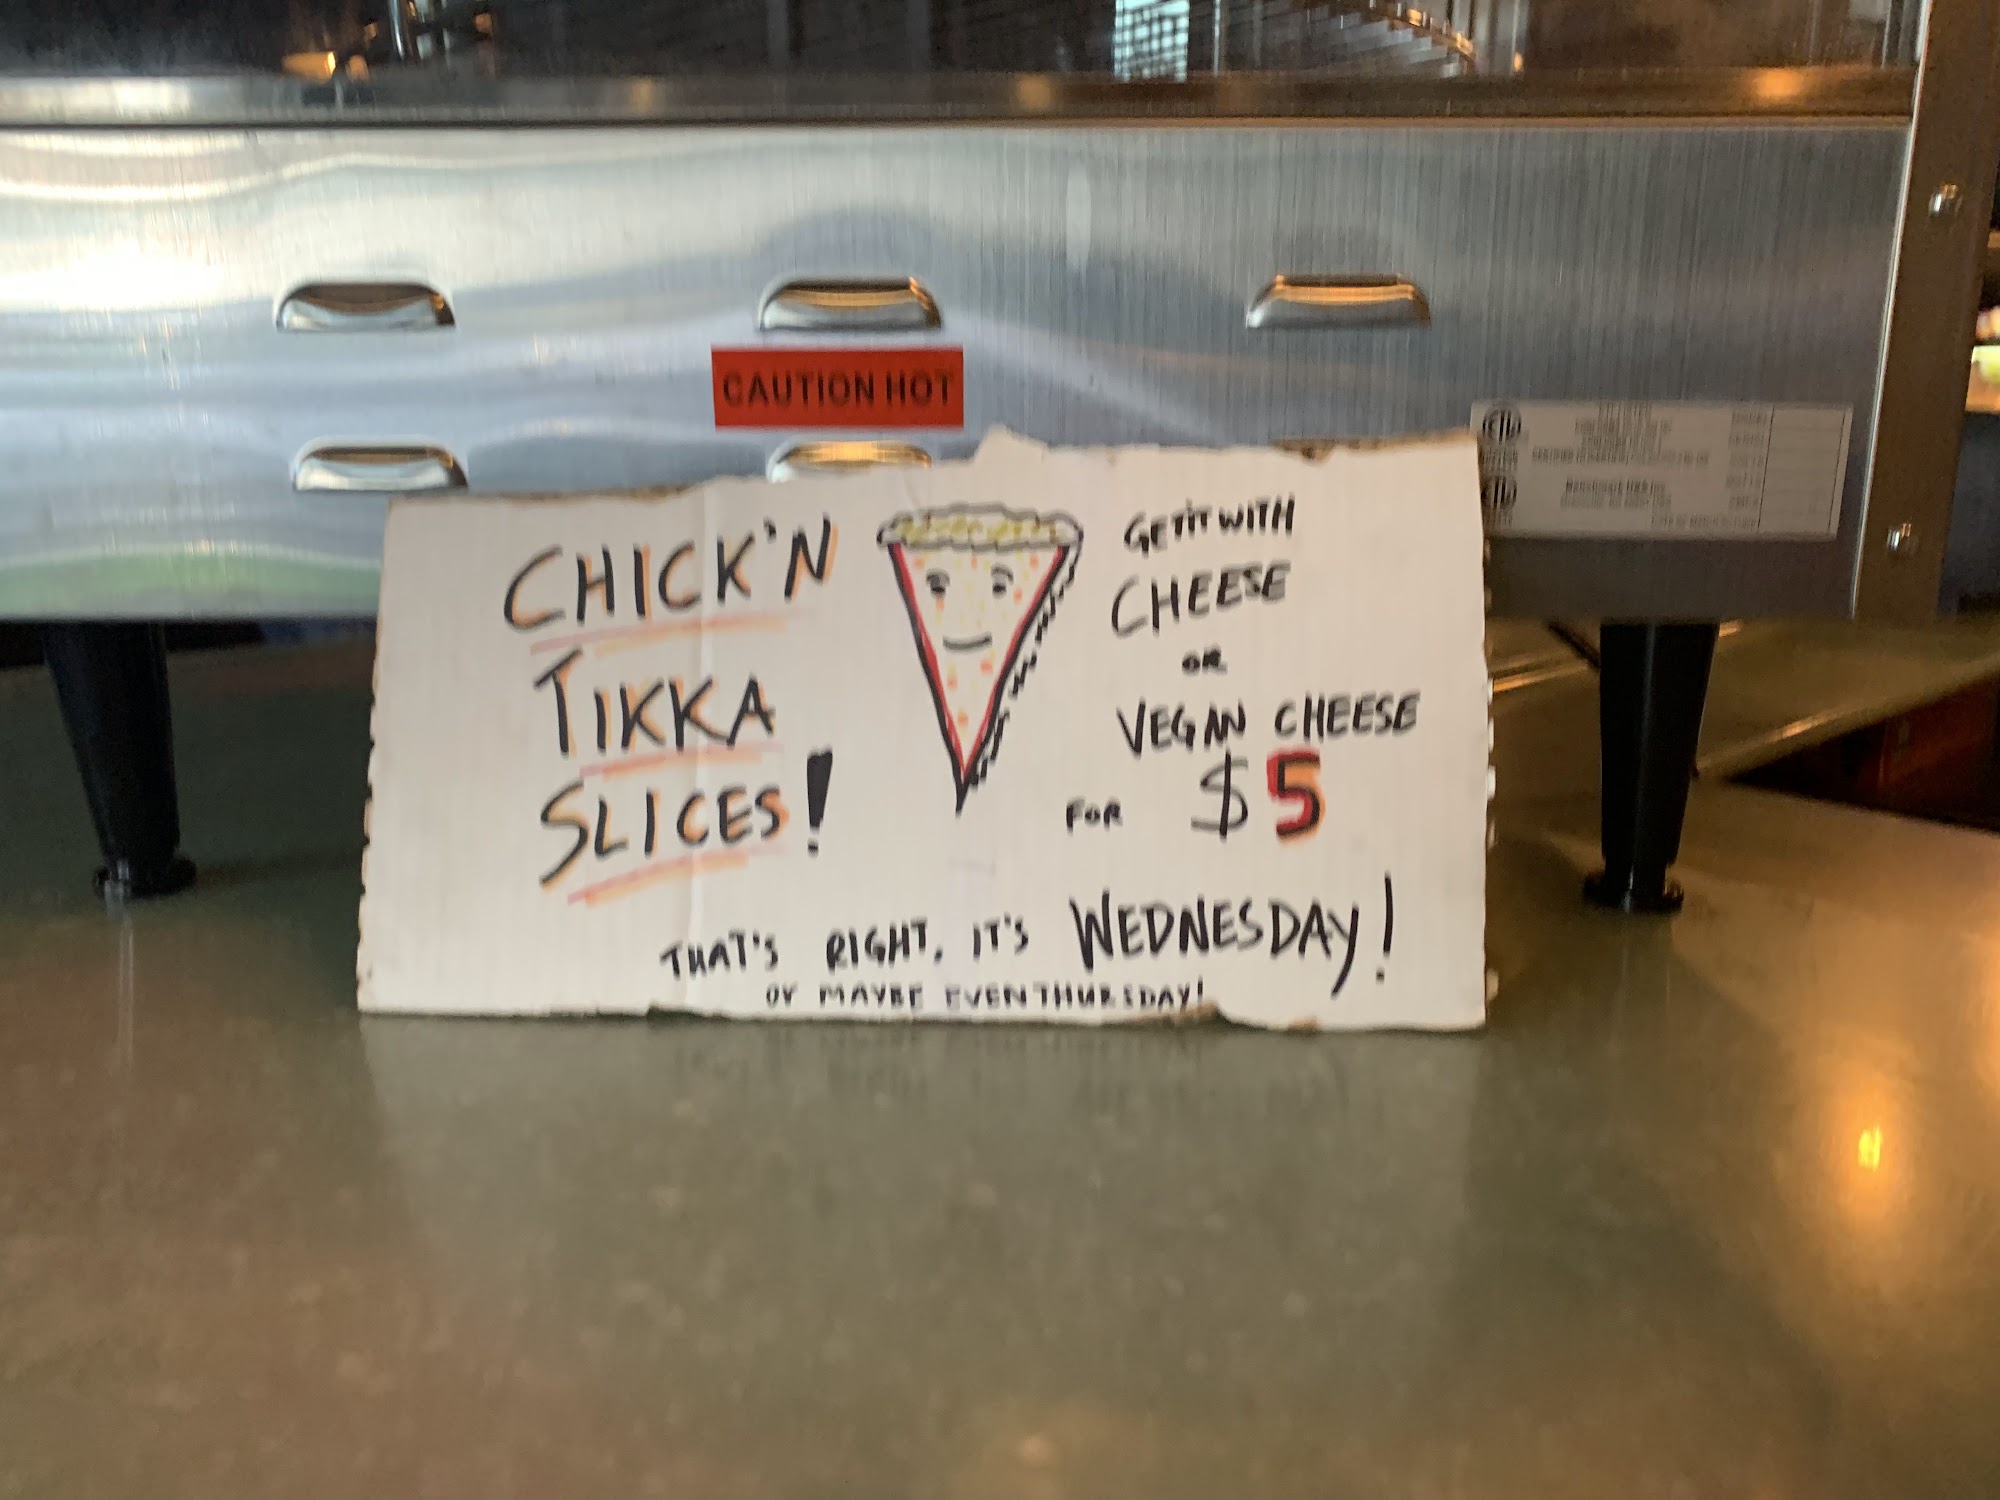 CAUTION HOT
CHICK'N
TIKKA
SLICES!
GET IT WITH
CHEESE
OR
VEGAN CHEESE
FOR $5
THAT'S RIGHT, IT'S WEDNESDAY!
OR MAYBE EVEN THURSDAY!